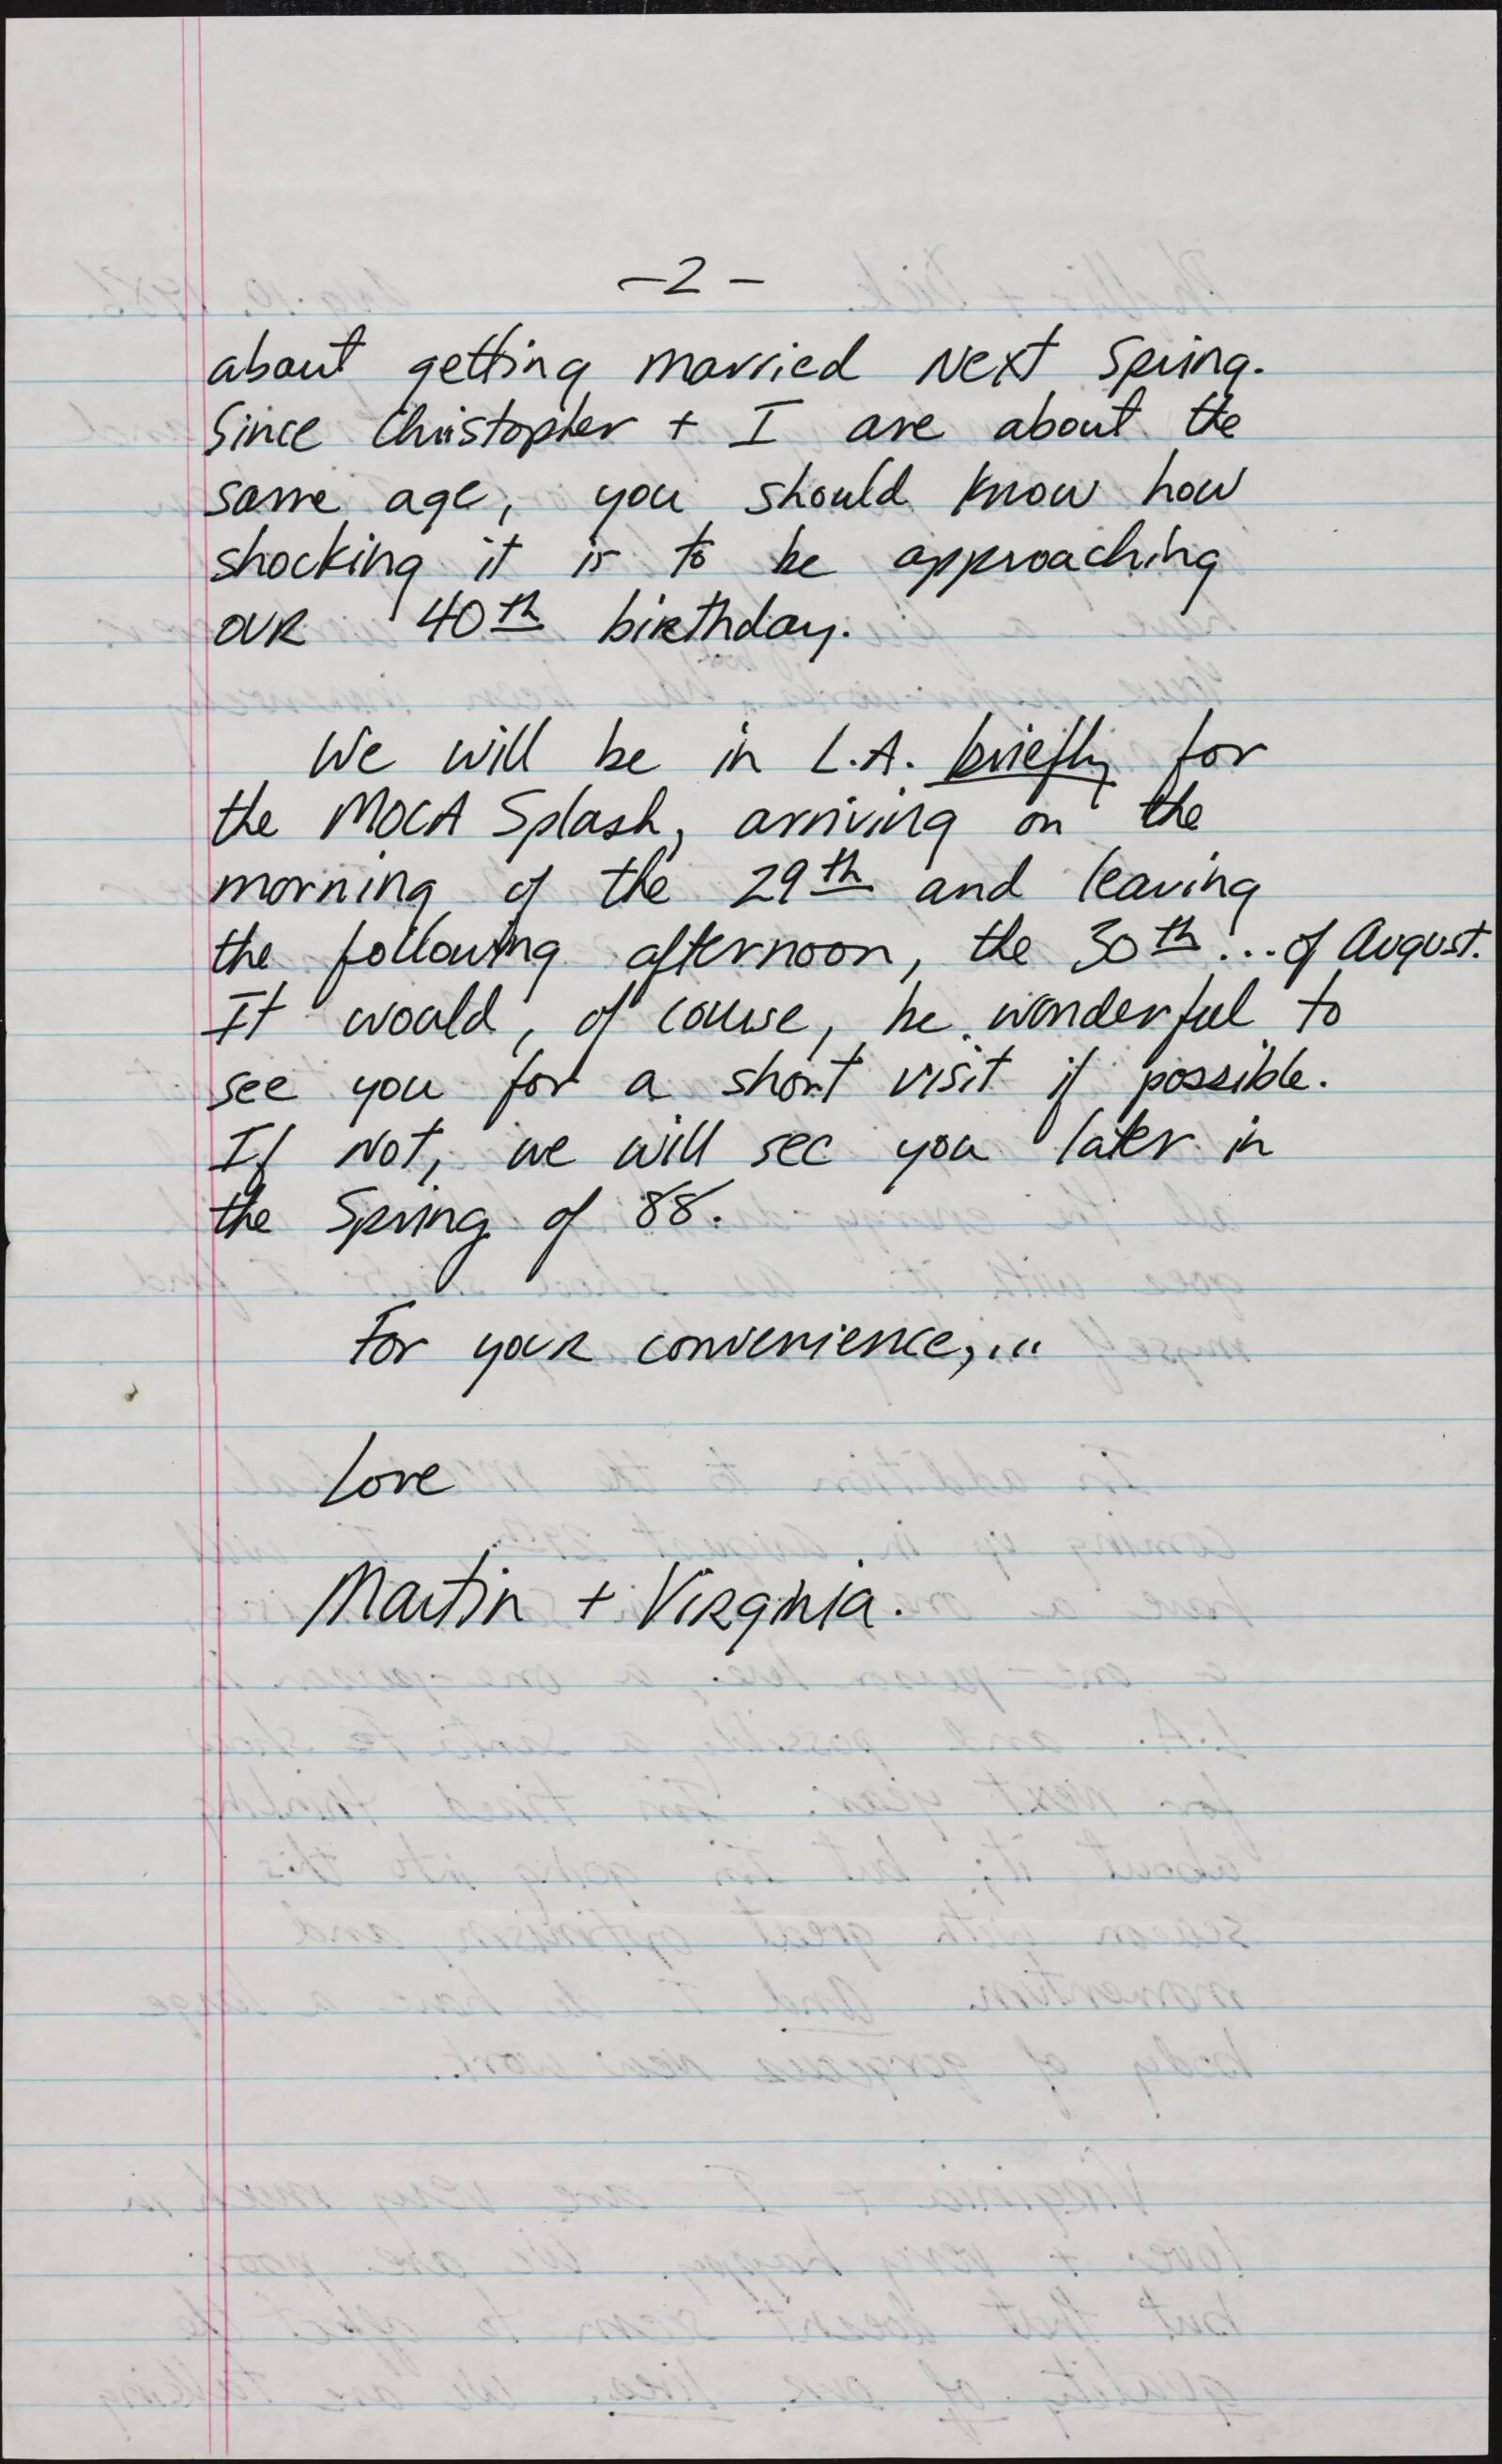 -2-
about getting married next Spring.
Since Christopher + I are about the
same age, you should know how
shocking it is to be approaching
our 40th birthday.
We will be in L.A. briefly for
the MOCA Splash, arriving on the
morning of the 29th and leaving
the following afternoon, the 30th... of August.
It would, of course, be wonderful to
see you for a short visit if possible.
If not, we will see you later in
the Spring of 88.
For your convenience,...
Love
Martin + Virginia.